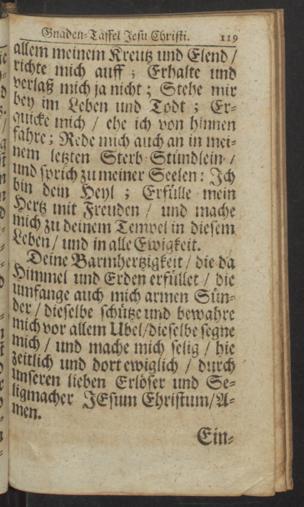 Gnaden-Taffel Jesu Christi. 119
allem meinem Kreutz und Elend /
richte mich auff ; Erhalte und
verlaß mich ja nicht ; Stehe mir
bey im Leben und Todt ; Er-
quicke mich / ehe ich von hinnen
fahre ; Rede mich auch an in mei-
nem letzten Sterb-Stündlein /
und sprich zu meiner Seelen : Ich
bin dein Heyl ; Erfülle mein
Hertz mit Freuden / und mache
mich zu deinem Tempel in diesem
Leben / und in alle Ewigkeit.
Deine Barmhertzigkeit / die da
Himmel und Erden erfüllet / die
umfange auch mich armen Sün-
der / dieselbe schütze und bewahre
mich vor allem Ubel / dieselbe segne
mich / und mache mich selig / hie
zeitlich und dort ewiglich / durch
unseren lieben Erlöser und Se-
ligmacher JEsum Christum / A-
men.
Ein-